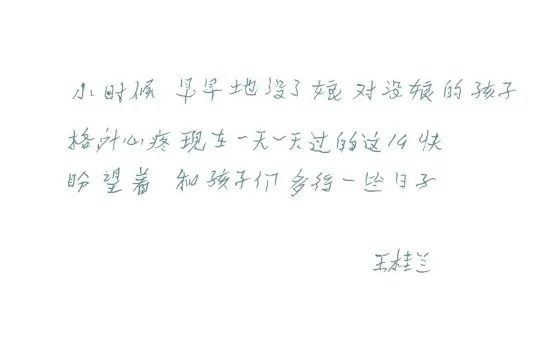 小时候 早早地没了娘 对没娘的孩子
格外心疼 现在一天一天过的这么快
盼望着 和孩子们多待一些日子
王桂兰